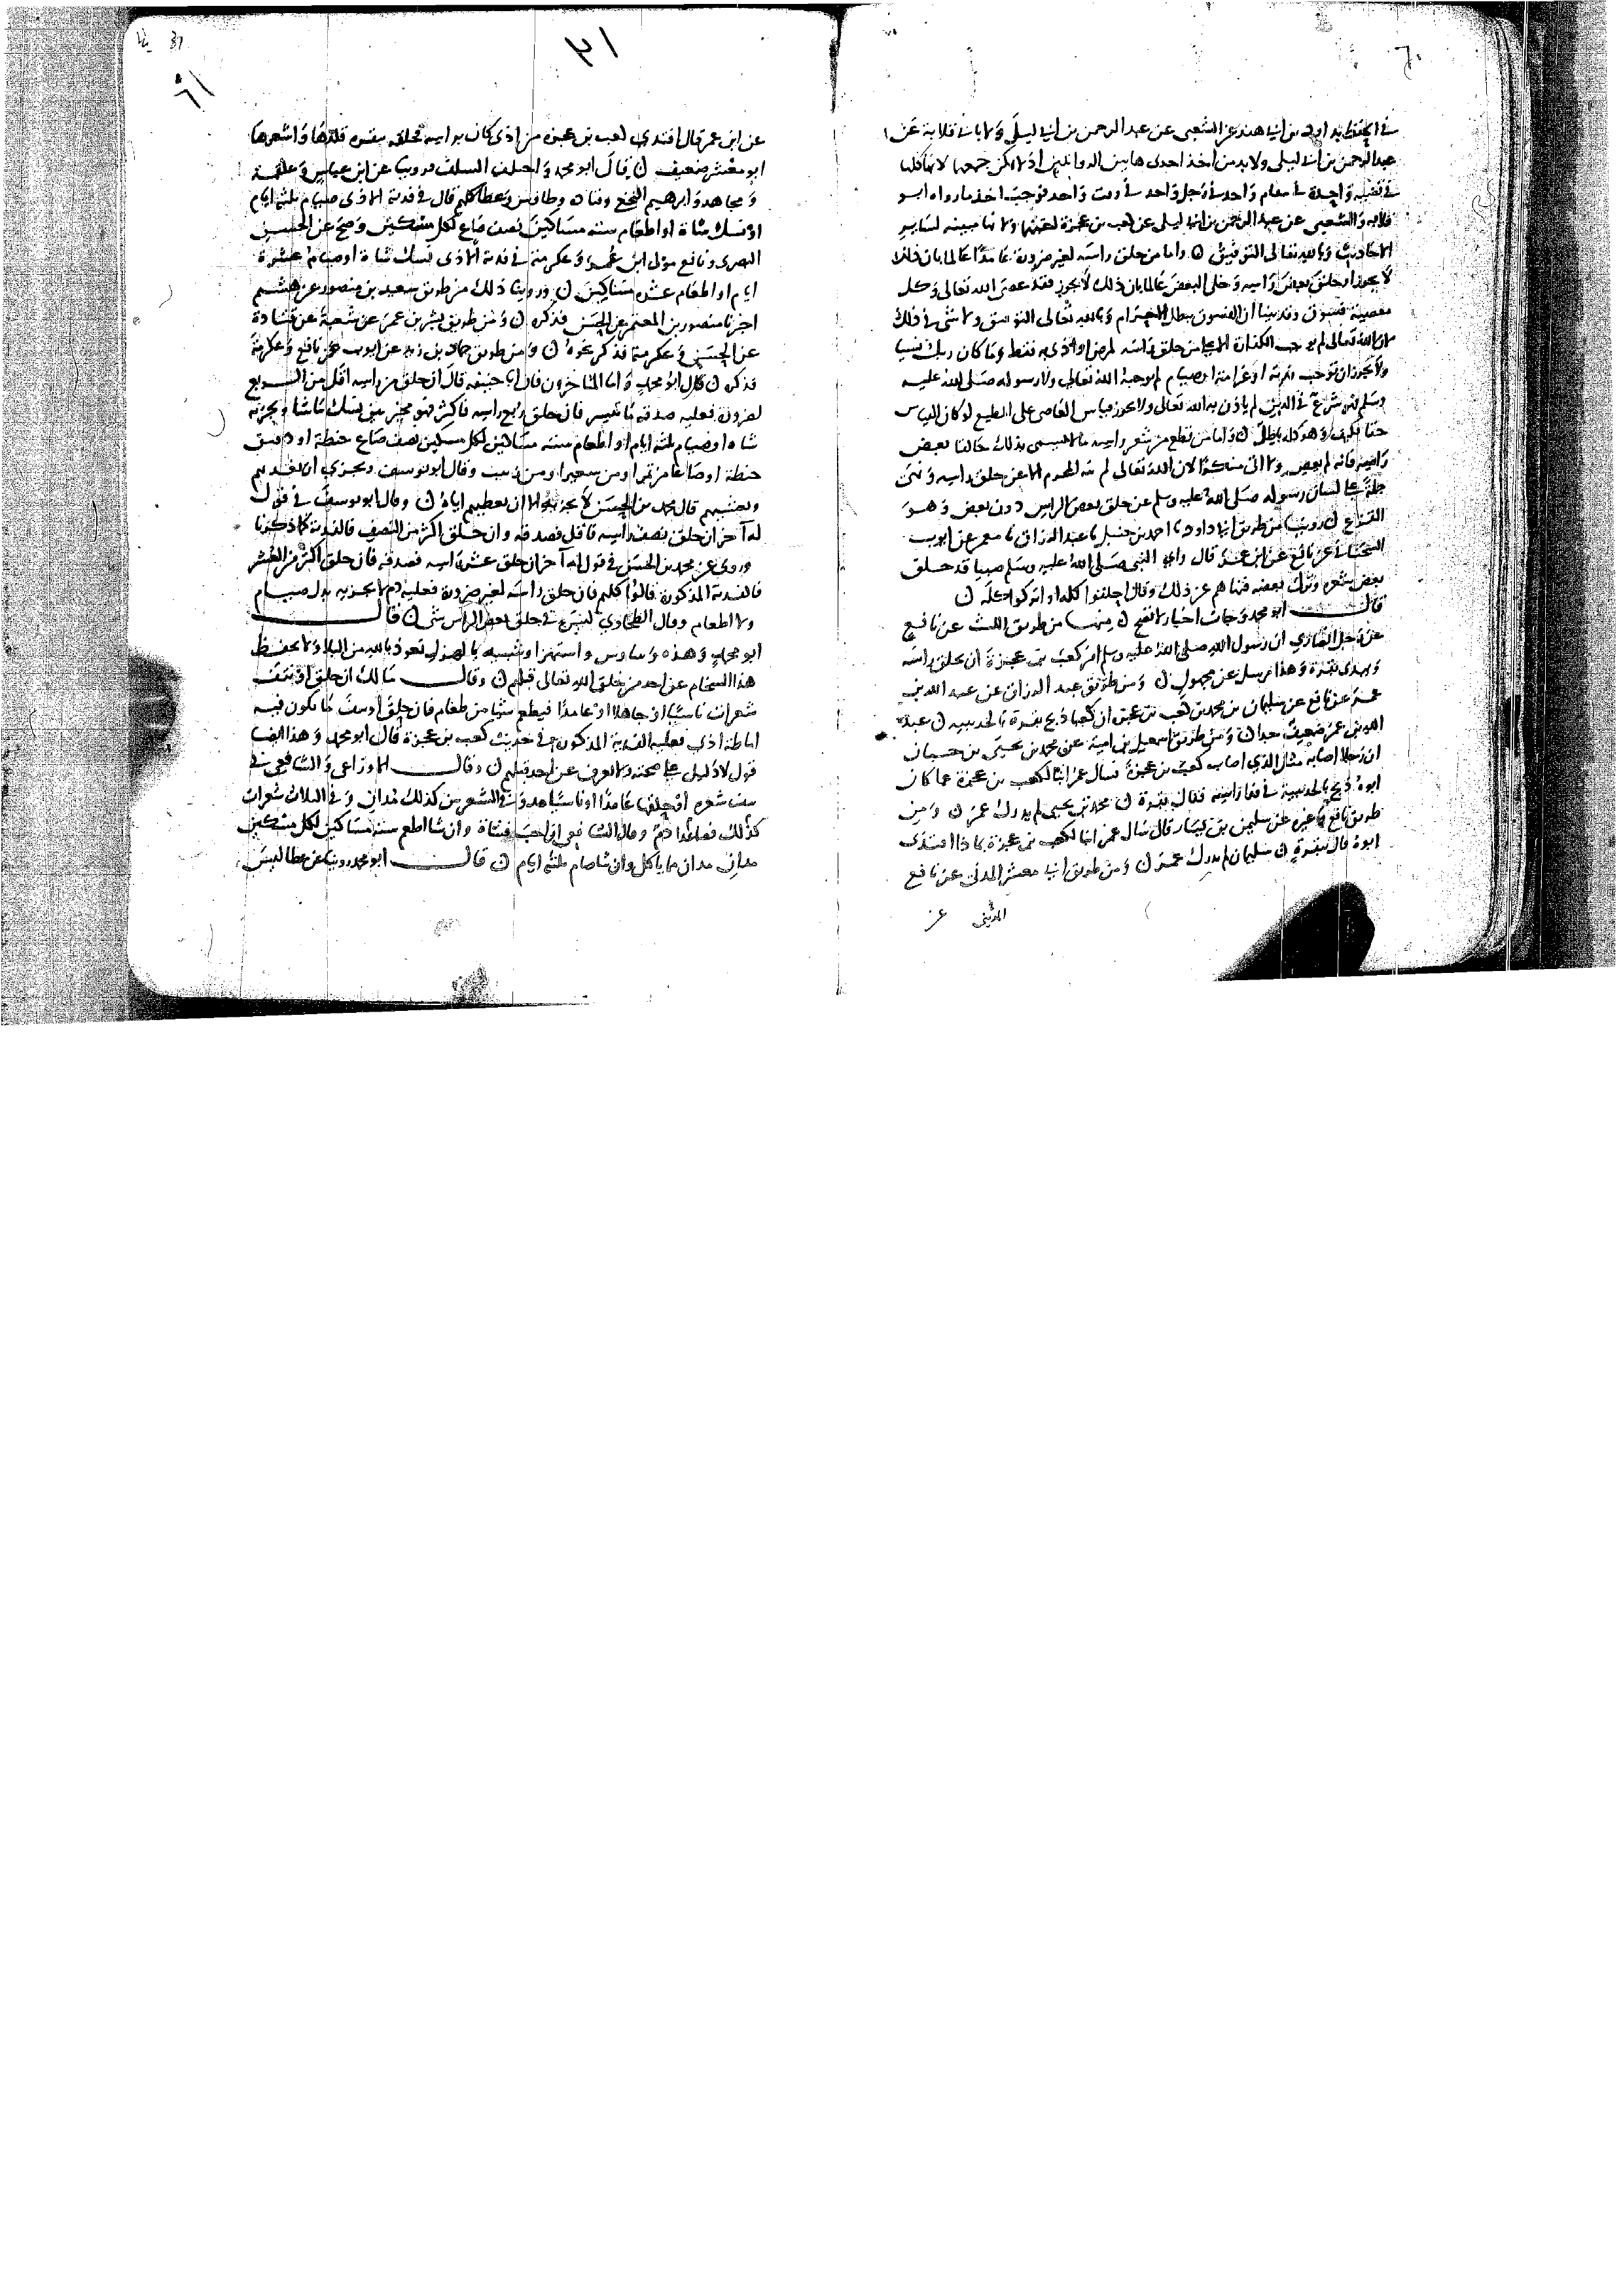 في الحفظ بداود بن ابي هند عن الشعبي عن عبد الرحمن بن ابي ليلى ولا بابي قلابة عن
عبد الرحمن بن ابي ليلى ولا بد من اخذ احدى هاتين الروايتين اذ لا يمكن جمعهما لانها كلها
في قضية واحدة في مقام واحد في رجل واحد في وقت واحد فوجب اخذ ما رواه ابو
قلابه والشعبي عن عبد الرحمن بن ابي ليلى عن كعب بن عجرة لثقتهما ولانها مبينه لساير
الاحاديث وبالله تعالى التوفيق ن واما من حلق راسه لغير ضرورة عامدا عالما بان ذلك
لا يجوز او حلق بعض راسه وخلى البعض عالما بان ذلك لا يجوز فقد عصى الله تعالى وكل
معصية فسوق وقد بينا ان الفسوق يبطل الاحرام وبالله تعالى التوفيق ولا شي في ذلك
لان الله تعالى لم يوجب الكفارة الا على من حلق راسه لمرض او اذى به فقط وما كان ربك نسيا
ولا يجوز ان توجب فدية او غرامة او صيام لم يوجبه الله تعالى ولا رسوله صلى الله عليه
وسلم فهو شرع في الدين لم ياذن به الله تعالى ولا يجوز قياس العاصي على المطيع لو كان القياس
حقا فكيف وهو كله باطل ن واما من قطع من شعر راسه ما لا يسمى بذلك حالقا بعض
راسه فانه لم يعص ولا اتى منكرا لان الله تعالى لم ينه المحرم الا عن حلق راسه ونهى
جملة على لسان رسوله صلى الله عليه وسلم عن حلق بعض الراس دون بعض وهو
القزع ن روينا من طريق ابي داود نا احمد بن حنبل نا عبد الرزاق نا معمر عن ايوب
السختياني عن نافع عن ابن عمر قال راى النبي صلى الله عليه وسلم صبيا قد حلق
بعض شعره وترك بعضه فنهاهم عن ذلك وقال احلقوا كله او اتركوا كله ن
قال ابو محمد وجات اخبار لا تصح ن منها من طريق الليث عن نافع
عن رجل انصاري ان رسول الله صلى الله عليه وسلم امر كعب بن عجرة ان يحلق راسه
ويهدي بقرة وهذا مرسل عن مجهول ن ومن طريق عبد الرزاق عن عبد الله بن
عمر عن نافع عن سليمان بن محمد بن كعب بن عجرة ان كعبا ذبح بقرة بالحديبيه ن عبد
الله بن عمر ضعيف جدا ن ومن طريق اسمعيل بن امية عن محمد بن يحيى بن حبان
ان رجلا اصابه مثل الذي اصاب كعب بن عجرة فسال عمر ابنا لكعب بن عجرة عما كان
ابوه ذبح بالحديبية في فدا راسه فقال بقرة ن محمد بن يحيى لم يدرك عمر ن ومن
طريق نافع عن سليمن بن يسار قال سال عمر ابنا لكعب بن عجرة بماذا افتدى
ابوه قال ببقرة ن سليمان لم يدرك عمر ن ومن طريق ابي معشر المدني عن نافع
المديني عن
٣١
37
٦١
عن ابن عمر قال افتدى كعب بن عجرة من اذى كان براسه فحلقه ببقره قلدها واشعرها
ابو معشر ضعيف ن قال ابو محمد واختلف السلف فروينا عن ابن عباس وعلقمة
ومجاهد وابرهيم النخعي وطاوس وعطا كلهم قال في فدية الاذى صيام ثلثة ايام
او نسك شاة او اطعام سته مساكين نصف صاع لكل مسكين وصح عن الحسن
البصرى ونافع مولى ابن عمر وعكرمة في فدية الاذى نسك شاة او صيام عشرة
ايام او اطعام عشره مساكين ن وروينا ذلك من طريق سعيد بن منصور عن هشيم
اخبرنا منصور بن المعتمر عن الحسن فذكره ن ومن طريق بشر بن عمر عن شعبة عن قتادة
عن الحسن وعكرمة فذكر نحوه ن ومن طريق حماد بن زيد عن ايوب عن نافع وعكرمة
فذكره ن قال ابو محمد واما المتاخرون فان ابا حنيفه قال ان حلق من راسه اقل من الربع
لضرورة فعليه صدقه ما تيسر فان حلق ربع راسه فاكثر فهو مخير بين نسك ما شا ويجزيه
شاه او صيام ثلثه ايام او اطعام سته مساكين لكل مسكين نصف صاع حنطة او دقيق
حنطة او صاعا من تمر او من شعير او من زبيب وقال ابو يوسف ويجزي ان يغديهم
ويعشيهم قال محمد بن الحسن لا يجزيه الا ان يعطيهم اياه ن وقال ابو يوسف في قول
له آخر ان حلق نصف راسه فاقل فصدقه وان حلق اكثر من النصف فالفدية كما ذكرنا
وروي عن محمد بن الحسن في قول له آخر ان حلق عشر راسه فصدقه فان حلق اكثر من العشر
فالفدية المذكورة قالوا كلهم فان حلق راسه لغير ضرورة فعليه دم لا يجزيه بدله صيام
ولا اطعام وقال الطحاوي ليس في حلق بعض الراس شي ن قال
ابو محمد وهذه وساوس واستهزا وشبيه بالهزل نعوذ بالله من البلا ولا يحفظ
هذا السخام عن احد من خلق الله تعالى قبلهم ن وقال مالك ان حلق او نتف
شعرات ناسيا او جاهلا او عامدا فيطعم شيا من طعام فان حلق او نتف ما يكون فيه
اماطة اذى فعليه الفدية المذكورة في حديث كعب بن عجرة قال ابو محمد وهذا ايضا
قول لا دليل على صحته ولا يعرف عن احد قبله ن وقال الاوزاعي والشافعي في
نتف شعره او حلقها عامدا او ناسيا مد وفي الشعرتين كذلك مدان وفي الثلاث شعرات
كذلك فصاعدا دم وقال الشافعي ان احب فشاة وان شا اطعم سته مساكين لكل مسكين
مدان مدان مما ياكل وان شا صام ثلثه ايام ن قال ابو محمد روينا عن عطا ليس